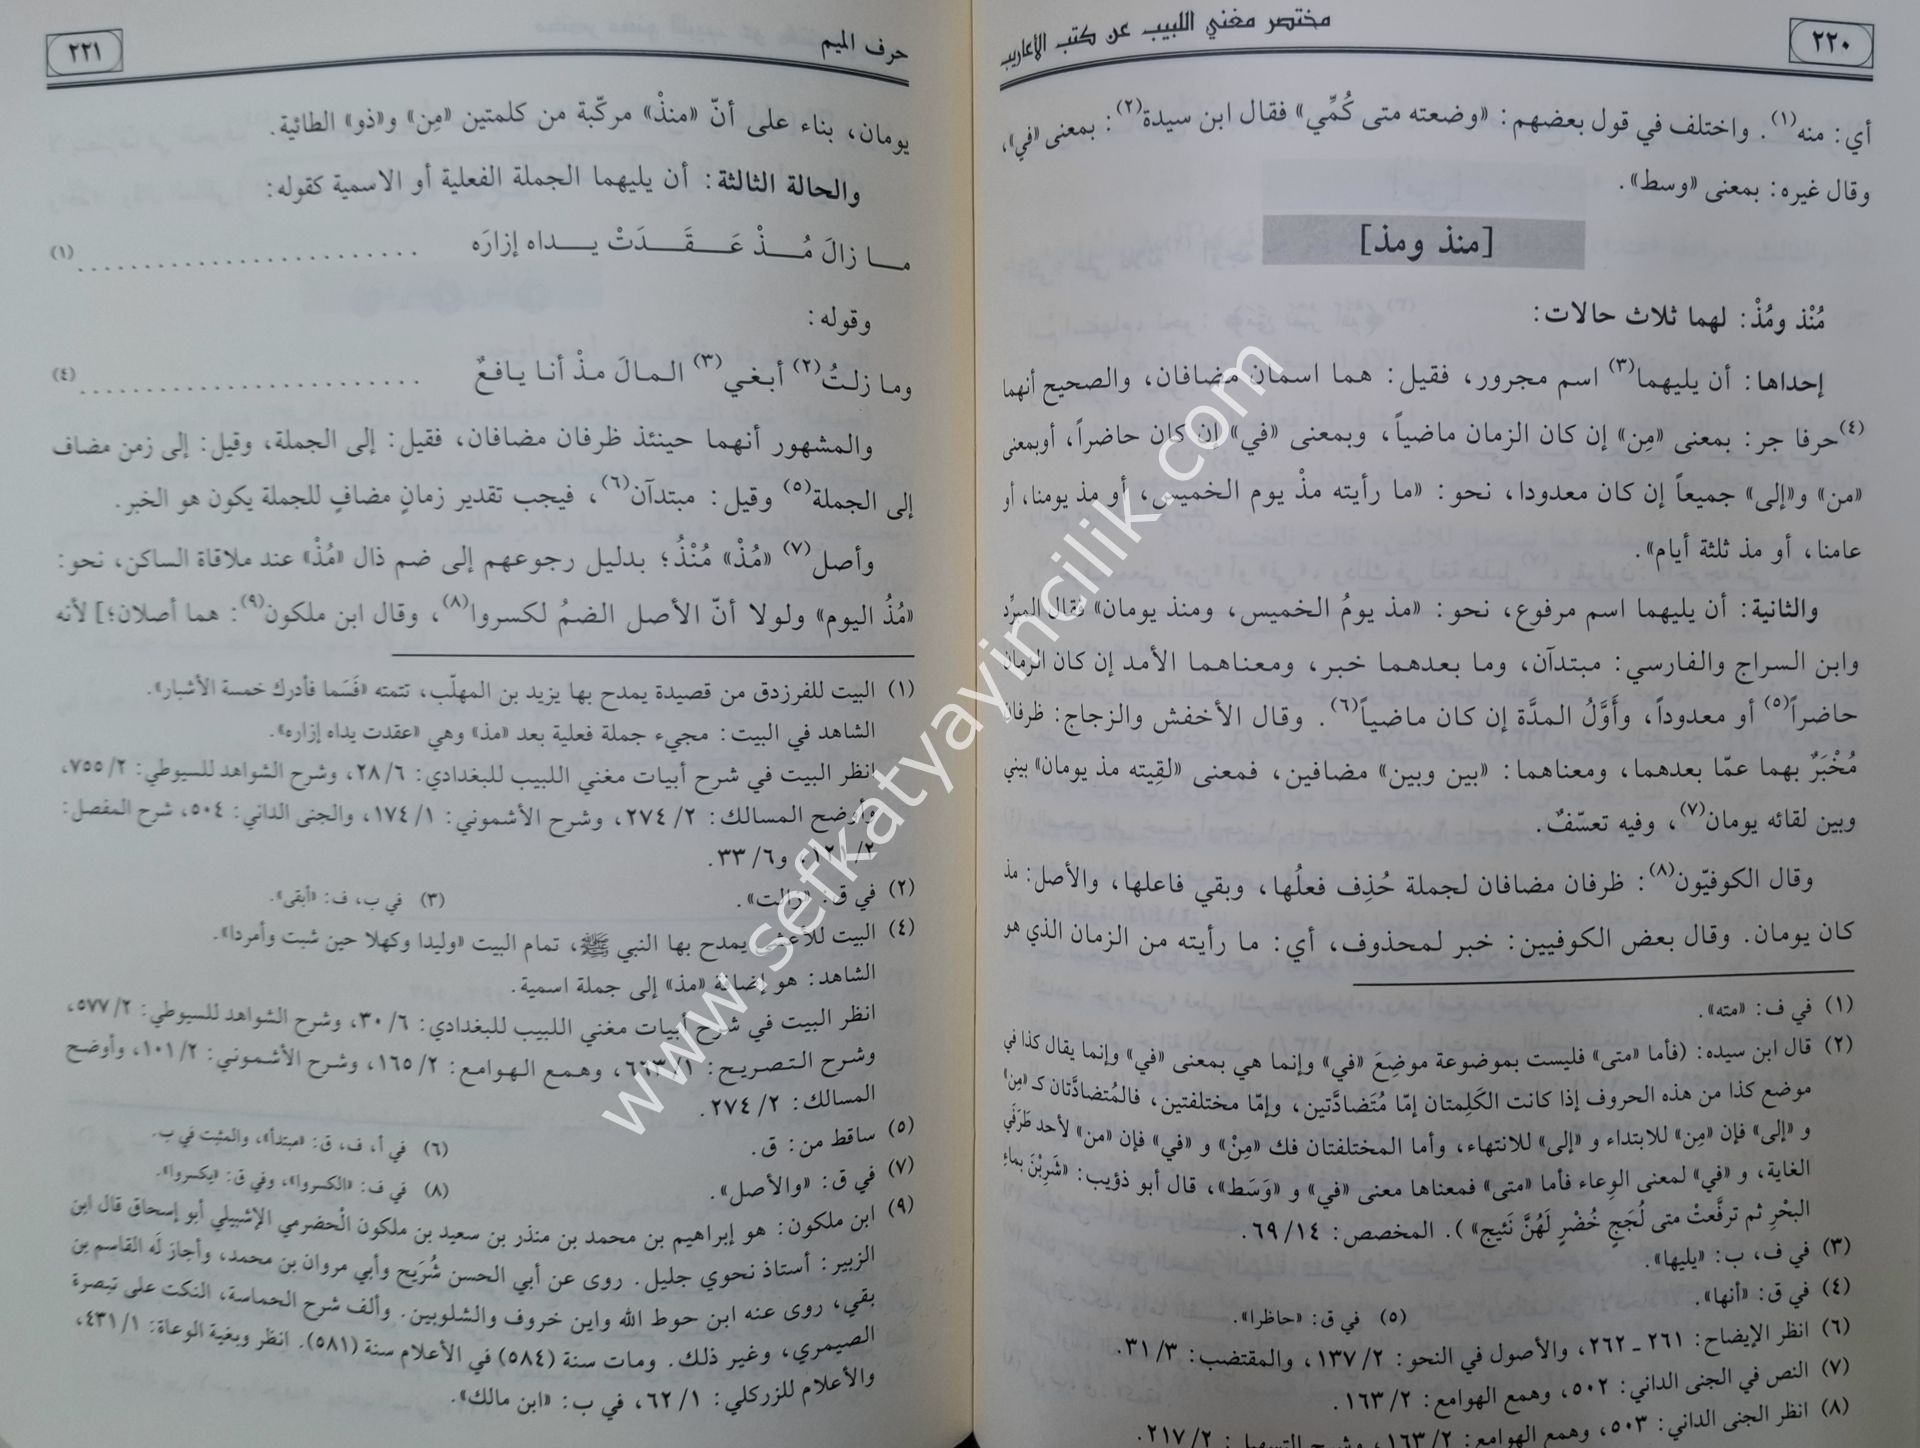 ٢٢٠
مختصر مغني اللبيب عن كتب الأعاريب
أي: منه(١). واختلف في قول بعضهم: «وضعته متى كُمِّي» فقال ابن سيدة(٢): بمعنى «في»،
وقال غيره: بمعنى «وسط».
[منذ ومذ]
مُنْذ ومُذْ: لهما ثلاث حالات:
إحداها: أن يليهما(٣) اسم مجرور، فقيل: هما اسمان مضافان، والصحيح أنهما
(٤)حرفا جر: بمعنى «مِن» إن كان الزمان ماضياً، وبمعنى «في» إن كان حاضراً، أوبمعنى
«من» و«إلى» جميعاً إن كان معدودا، نحو: «ما رأيته مذْ يوم الخميس، أو مذ يومنا، أو
عامنا، أو مذ ثلثة أيام».
والثانية: أن يليهما اسم مرفوع، نحو: «مذ يومُ الخميس، ومنذ يومان» فقال المبرّد
وابن السراج والفارسي: مبتدآن، وما بعدهما خبر، ومعناهما الأمد إن كان الزمان
حاضراً(٥) أو معدوداً، وأَوَّلُ المدَّة إن كان ماضياً(٦). وقال الأخفش والزجاج: ظرفان
مُخْبَرٌ بهما عمّا بعدهما، ومعناهما: «بين وبين» مضافين، فمعنى «لقِيته مذ يومان» بيني
وبين لقائه يومان(٧)، وفيه تعسّفٌ.
وقال الكوفيّون(٨): ظرفان مضافان لجملة حُذِف فعلُها، وبقي فاعلها، والأصل: مذ
كان يومان. وقال بعض الكوفيين: خبر لمحذوف، أي: ما رأيته من الزمان الذي هو
(١) في ف: «مته».
(٢) قال ابن سيده: (فأما «متى» فليست بموضوعة موضِعَ «في» وإنما هي بمعنى «في» وإنما يقال كذا في
موضع كذا من هذه الحروف إذا كانت الكَلِمتان إمّا مُتَضادَّتين، وإمّا مختلفتين، فالمُتضادَّتان كـ «مِن»
و «إلى» فإن «مِن» للابتداء و «إلى» للانتهاء، وأما المختلفتان فك «مِنْ» و «في» فإن «من» لأحد طَرَفَي
الغاية، و «في» لمعنى الوِعاء فأما «متى» فمعناها معنى «في» و «وَسَط»، قال أبو ذؤيب: «شَرِبْنَ بماءِ
البحْرِ ثم ترفَّعتْ متى لُجَجٍ خُضْرٍ لَهُنَّ نَئيج» ). المخصص: ١٤/ ٦٩.
(٣) في ف، ب: «يليها».
(٤) في ق: «أنها».
(٥) في ق: «حاظرا».
(٦) انظر الإيضاح: ٢٦١ ـ ٢٦٢، والأصول في النحو: ٢/ ١٣٧، والمقتضب: ٣/ ٣١.
(٧) النص في الجنى الداني: ٥٠٢، وهمع الهوامع: ٢/ ١٦٣.
(٨) انظر الجنى الداني: ٥٠٣، وهمع الهوامع: ٢/ ١٦٣، وشرح التسهيل: ٢/ ٢١٧.
حرف الميم
٢٢١
يومان، بناء على أنّ «منذْ» مركّبة من كلمتين «مِن» و«ذو» الطائية.
والحالة الثالثة: أن يليهما الجملة الفعلية أو الاسمية كقوله:
ما زالَ مُذْ عَقَدَتْ يداه إزارَه .......................... (١)
وقوله:
وما زلتُ(٢) أبغي(٣) المالَ مذْ أنا يافعٌ .......................... (٤)
والمشهور أنهما حينئذ ظرفان مضافان، فقيل: إلى الجملة، وقيل: إلى زمن مضاف
إلى الجملة(٥) وقيل: مبتدآن(٦)، فيجب تقدير زمانٍ مضافٍ للجملة يكون هو الخبر.
وأصل(٧) «مُذْ» مُنْذُ؛ بدليل رجوعهم إلى ضم ذال «مُذْ» عند ملاقاة الساكن، نحو:
«مُذُ اليوم» ولولا أنّ الأصل الضمُ لكسروا(٨)، وقال ابن ملكون(٩): هما أصلان؛] لأنه
(١) البيت للفرزدق من قصيدة يمدح بها يزيد بن المهلّب، تتمته «فَسَما فأدرك خمسة الأشبار».
الشاهد في البيت: مجيء جملة فعلية بعد «مذ» وهي «عقدت يداه إزاره».
انظر البيت في شرح أبيات مغني اللبيب للبغدادي: ٦/ ٢٨، وشرح الشواهد للسيوطي: ٢/ ٧٥٥،
وأوضح المسالك: ٢/ ٢٧٤، وشرح الأشموني: ١/ ١٧٤، والجنى الداني: ٥٠٤، شرح المفصل:
٢/ ١٢١، و٦/ ٣٣.
(٢) في ق: «والت».
(٣) في ب، ف: «أبقى».
(٤) البيت للأعشى يمدح بها النبي ﷺ، تمام البيت «وليدا وكهلا حين شبت وأمردا».
الشاهد: هو إضافة «مذ» إلى جملة اسمية.
انظر البيت في شرح أبيات مغني اللبيب للبغدادي: ٦/ ٣٠، وشرح الشواهد للسيوطي: ٢/ ٥٧٧،
وشرح التصريح: ١/ ٦٦٣، وهمع الهوامع: ٢/ ١٦٥، وشرح الأشموني: ٢/ ١٠١، وأوضح
المسالك: ٢/ ٢٧٤.
(٥) ساقط من: ق.
(٦) في أ، ف، ق: «مبتدأ»، والمثبت في ب.
(٧) في ق: «والأصل».
(٨) في ف: «الكسروا»، وفي ق: «يكسروا».
(٩) ابن ملكون: هو إبراهيم بن محمد بن منذر بن سعيد بن ملكون الْحضرمي الإشبيلي أبو إسحاق قال ابن
الزبير: أستاذ نحوي جليل. روى عن أبي الحسن شُرَيح وأبي مروان بن محمد، وأجاز لَه القاسم بن
بقي، روى عنه ابن حوط الله واين خروف والشلوبين. وألف شرح الحماسة، النكت على تبصرة
الصيمري، وغير ذلك. ومات سنة (٥٨٤) في الأعلام سنة (٥٨١). انظر وبغية الوعاة: ١/ ٤٣١،
والأعلام للزركلي: ١/ ٦٢، في ب: «ابن مالك».
www.sefkatyayincilik.com